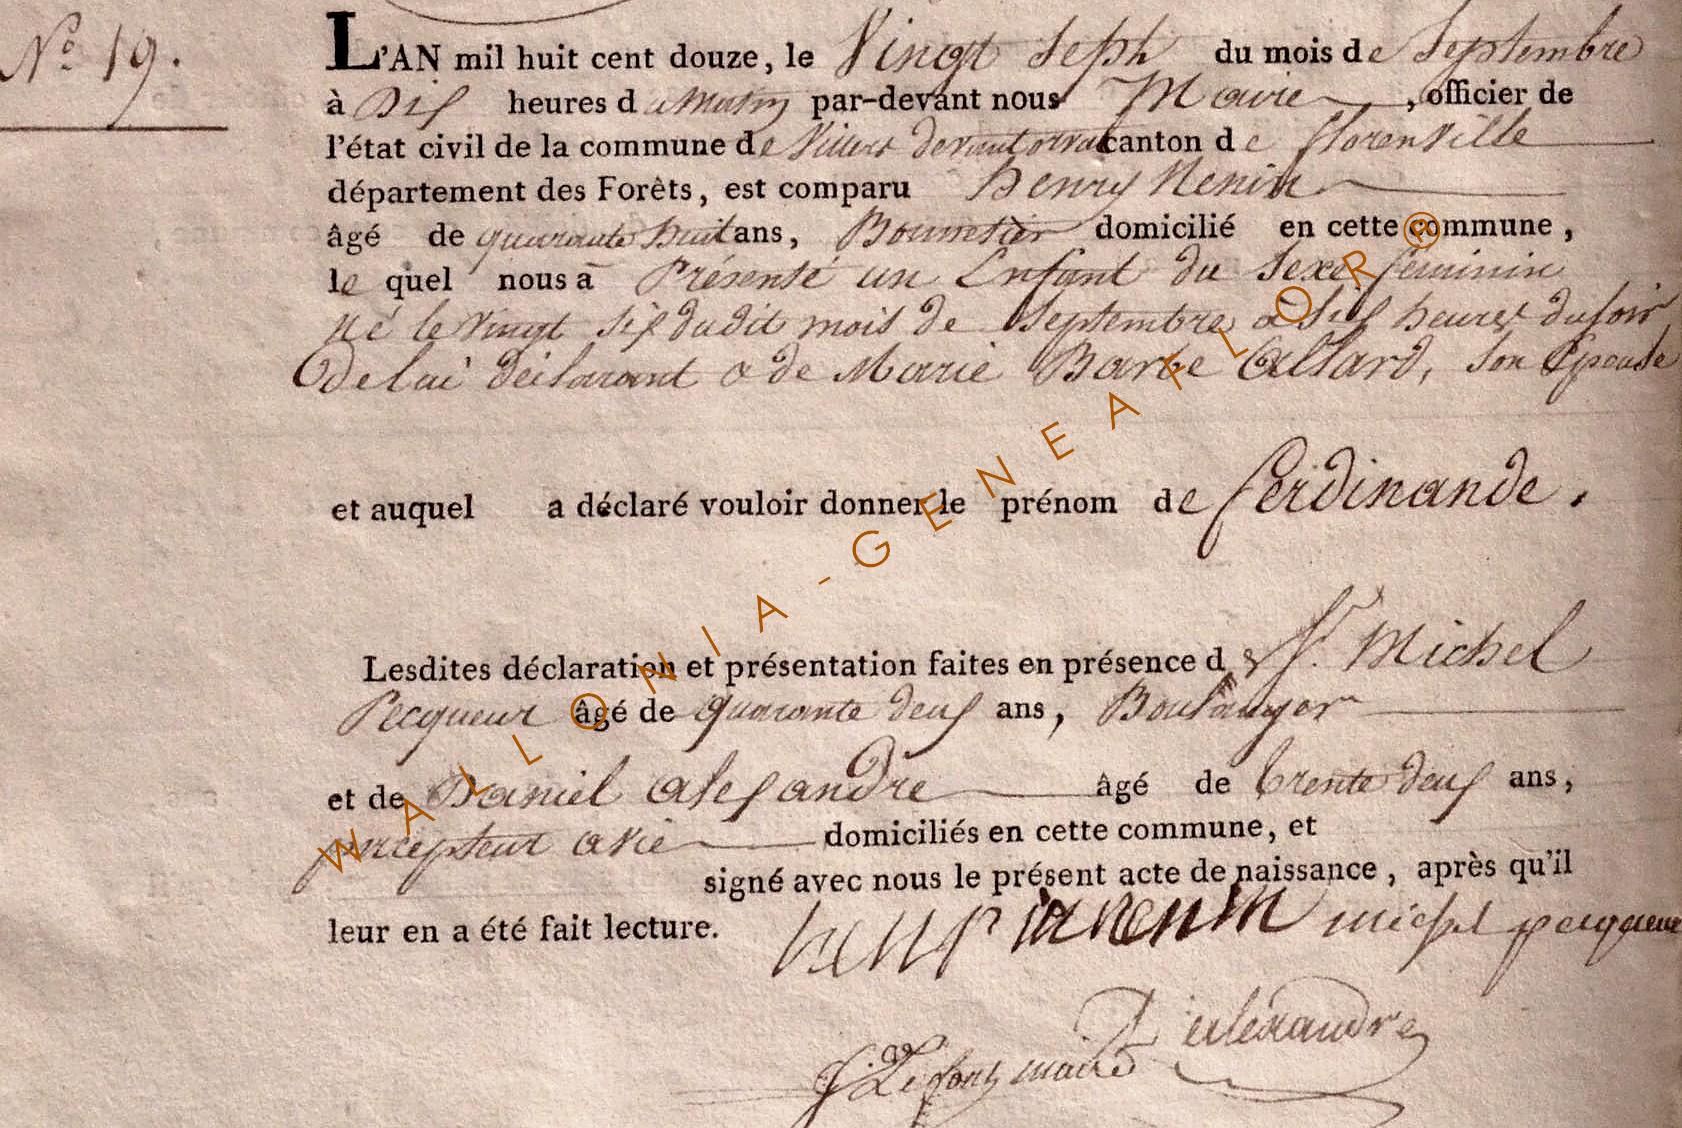 N.o 19.
L'AN mil huit cent douze, le Vingt Sept du mois de Septembre
à Dix heures du Matin par-devant nous Maire, officier de
l'état civil de la commune de Villers devant orval canton de florenville
département des Forêts, est comparu henry Nenin
âgé de quarante huit ans, domicilié en cette commune,
le quel nous a Présenté un Enfant du Sexe feminin
né le Vingt Six dudit mois de Septembre à Six heures du Soir
De lui déclarant & de Marie Barbe Allard, Son Epouse
et auquel a déclaré vouloir donner le prénom de ferdinande.
Lesdites déclaration et présentation faites en présence de Sr. Michel
Pecqueur âgé de quarante deux ans, Boulanger
et de Daniel alexandre âgé de trente deux ans,
percepteur a vie domiciliés en cette commune, et
signé avec nous le présent acte de naissance, après qu'il
leur en a été fait lecture. nenin michel pecqueur
alexandre
maire
WALLONIA-GENEAFLOR®